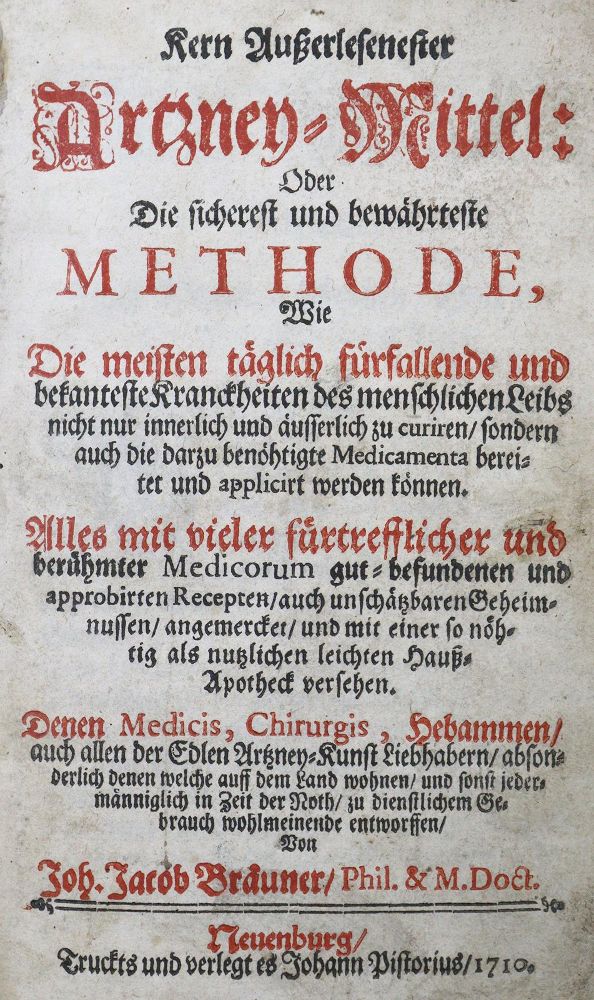 Kern Außerlesenester
Artzney-Mittel:
Oder
Die sicherest und bewährteste
METHODE,
Wie
Die meisten täglich fürfallende und
bekanteste Kranckheiten des menschlichen Leibs
nicht nur innerlich und äusserlich zu curiren/ sondern
auch die darzu benöhtigte Medicamenta berei-
tet und applicirt werden können.
Alles mit vieler fürtrefflicher und
berühmter Medicorum gut-befundenen und
approbirten Recepten/ auch unschätzbaren Geheim-
nussen/ angemercket/ und mit einer so nöh-
tig als nutzlichen leichten Hauß-
Apotheck versehen.
Denen Medicis, Chirurgis, Hebammen/
auch allen der Edlen Artzney-Kunst Liebhabern/ abson-
derlich denen welche auff dem Land wohnen/ und sonst jeder-
männiglich in Zeit der Noth/ zu dienstlichem Ge-
brauch wohlmeinende entworffen/
Von
Joh. Jacob Bräuner/ Phil. & M. Doct.
Neuenburg/
Truckts und verlegt es Johann Pistorius/ 1710.